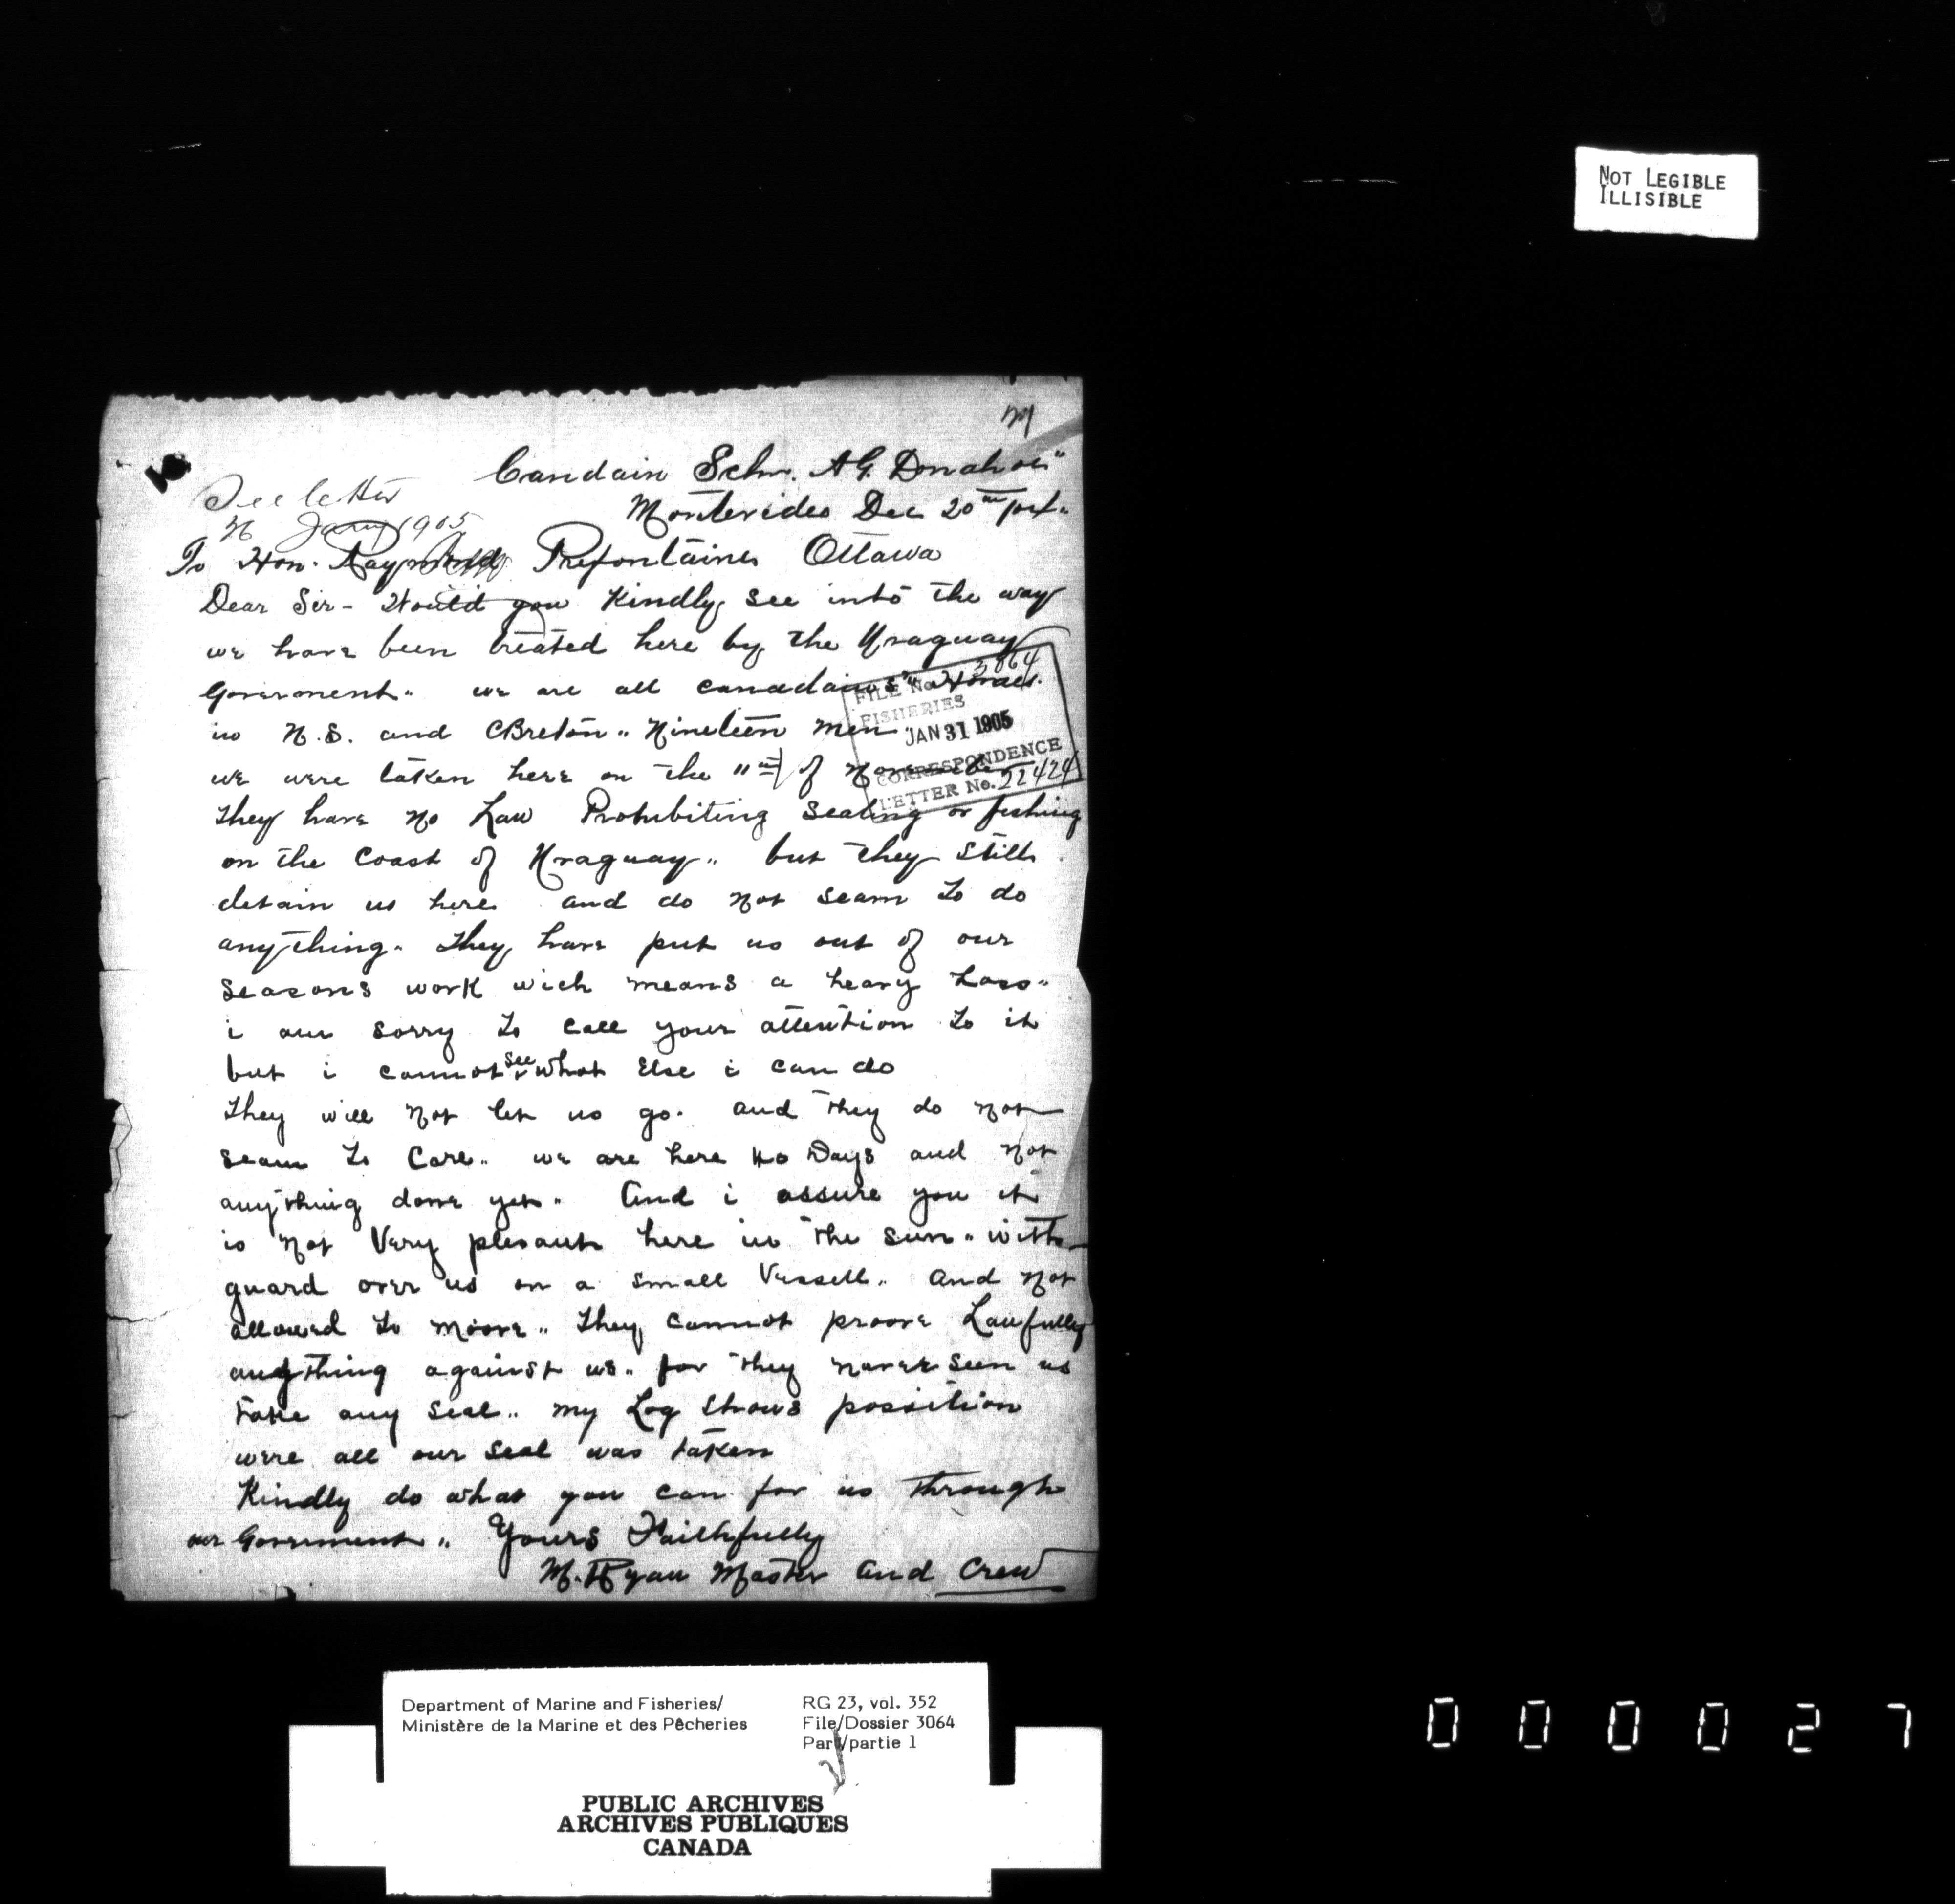 NOT LEGIBLE
ILLISIBLE
Candain Schr. A.G. Donahoe"
See letter
Montevideo Dec 20th
Jany 1905
To Hon. Raymond Prefontaines Ottawa
Dear Sir - Would you Kindly see into the way
we have been treated here by the Uraguay
Goverment" we are all canadains" Homes
in N.S. and CBreton" Nineteen men
we were taken here on the 11th of
They have no Law Prohibiting Sealing or fishing
on the Coast of Uraguay" but they still
detain us here and do not seam to do
anything" They have put us out of our
seasons work wich means a heavy Loss"
i am sorry to call your attention to it
but i cannot see what Else i can do
They will not let us go. and they do not
seam to Care" we are here 40 Days and not
anything done yet" And i assure you it
is not Very plesant here in the sun" with
guard over us on a small Vessell" And not
allowed to moove" They cannot proove Lawfully
anything against us" for they never seen us
take any seal" my Log Shows possition
were all our seal was taken
Kindly do what you can for us through
our Goverment" Yours Faithfully
M. Ryan Master and Crew
FILE No. 3064
FISHERIES
JAN 31 1905
CORRESPONDENCE
LETTER No. 22424
Department of Marine and Fisheries/
Ministère de la Marine et des Pêcheries
RG 23, vol. 352
File/Dossier 3064
Part/partie 1
PUBLIC ARCHIVES
ARCHIVES PUBLIQUES
CANADA
000027